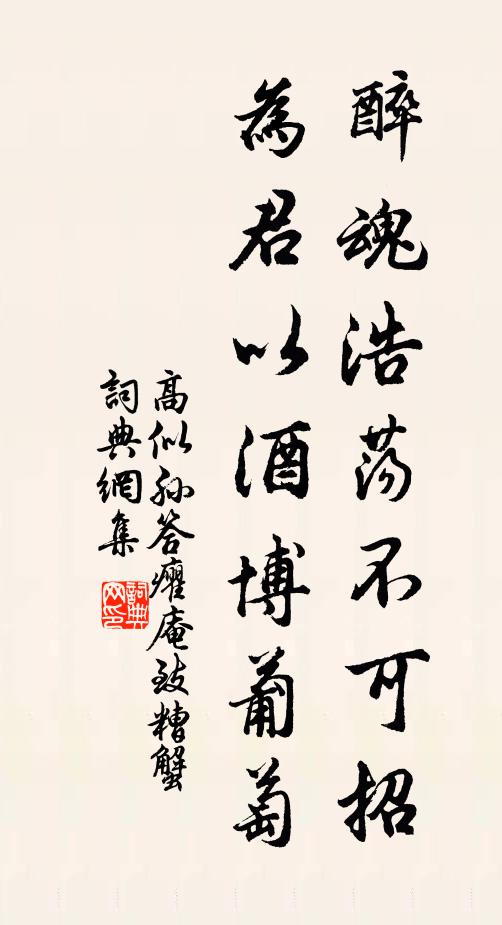 醉魂浩荡不可招
為君以酒博葡萄
高似孫答癯庵致糟蟹
詞典網集
詞典
网印